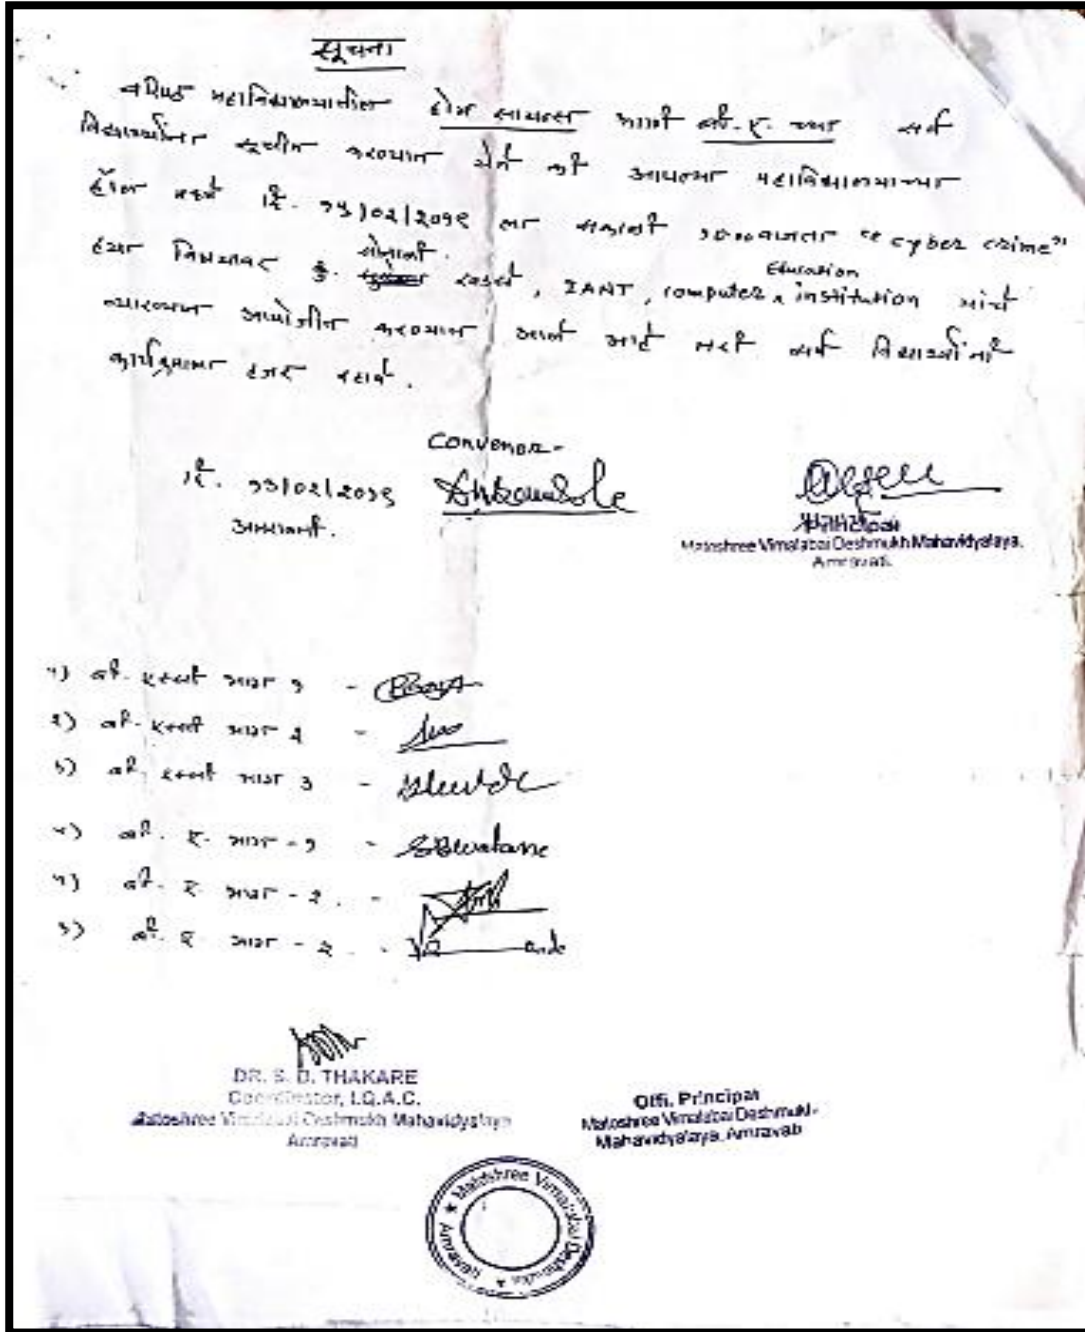 सूचना
वरिष्ठ महाविद्यालयातील होम सायन्स आणि बी.ए. च्या सर्व
विद्यार्थ्यांना सूचीत करण्यात येते की आपल्या महाविद्यालयाच्या
हॉल मध्ये दि. १५/०२/२०१९ ला सकाळी वाजता "cyber crime"
ह्या विषयावर कु. सोनाली, IANT, computer Education institution यांचे
व्याख्यान आयोजीत करण्यात आले आहे तरी सर्व विद्यार्थ्यांनी
कार्यक्रमाला हजर रहावे.
Convenor-
दि. १३/०२/२०१९
अमरावती.
Principal
Matoshree Vimalabai Deshmukh Mahavidyalaya,
Amravati.
१) बी. एस्सी भाग १ -
२) बी. एस्सी भाग २ -
३) बी. एस्सी भाग ३ -
४) बी. ए. भाग - १ -
५) बी. ए. भाग - २ . -
बी. ए. भाग -
DR. S. D. THAKARE
Coordinator, I.Q.A.C.
Matoshree Vimalabai Deshmukh Mahavidyalaya
Amravati
Offi. Principal
Matoshree Vimalabai Deshmukh
Mahavidyalaya, Amravati
Matoshree Vimalabai Deshmukh
Amravati